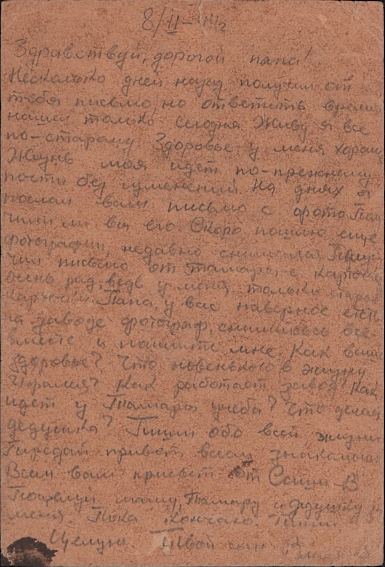 8/II-
Здравствуй, дорогой папа!
Несколько дней назад получил от
тебя письмо, но ответить время
нашел только сегодня. Живу я все
по-старому. Здоровье у меня хорошее
Жизнь моя идет по-прежнему
почти без изменений. На днях я
послал вам письмо с фото. Полу
чили ли вы его. Скоро пошлю еще
фотографии, недавно снимался. Полу
чил письмо от Тамары с карточкой
очень рад, ведь у меня только старые
карточки. Папа, у вас наверное есть
на заводе фотограф, снимитесь все
вместе и пошлите мне. Как ваше
здоровье? Что новенького в жизни
Как работает завод. Как
идет у Тамары учеба? Что делает
дедушка? Пиши обо всей жизни
Передай привет всем знакомым
Всем вам привет от Саши В
Поцелуй маму, Тамару и дедушку за
меня. Пока кончаю. Пиши
Целую Твой сын